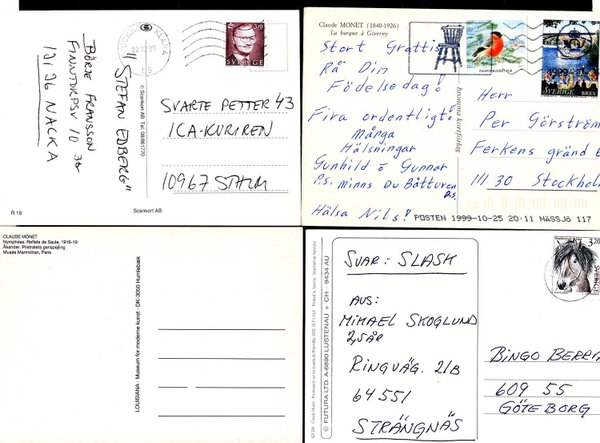 BÖRJE FRANSSON
FINNTORPSV 10 3tr
131 36 NACKA
"STEFAN EDBERG"
© Scankort AB Tel. 08-861770
SVERIGE
SVARTE PETTER 43
ICA-KURIREN
10967 STHLM
R 18
Scankort AB
Claude MONET (1840-1926)
La barque à Giverny
Stort Grattis
På Din
Födelsedag!
Fira ordentligt
Många
Hälsningar
Gunhild o Gunnar
P.s. Minns Du Båtturen
D.s.
Hälsa Nils!
SVERIGE
BREV
Herr
Per Görström
Ferkens gränd
111 30 Stockholm
POSTEN 1999-10-25 20:11 NÄSSJÖ 117
CLAUDE MONET
Nymphéas. Reflets de Saule, 1916-19
Åkander. Piletræets genspejling
Musée Marmottan, Paris
LOUISIANA · Museum for moderne kunst · DK-3050 Humlebæk
© FUTURA LTD. A-6890 LUSTENAU + CH - 9434 AU
SVAR: SLASK
AUS:
MIKAEL SKOGLUND
2,5 år
RINGVÄG. 21B
64551
STRÄNGNÄS
3,20
SVERIGE
BINGO BERRA
609 55
GÖTEBORG